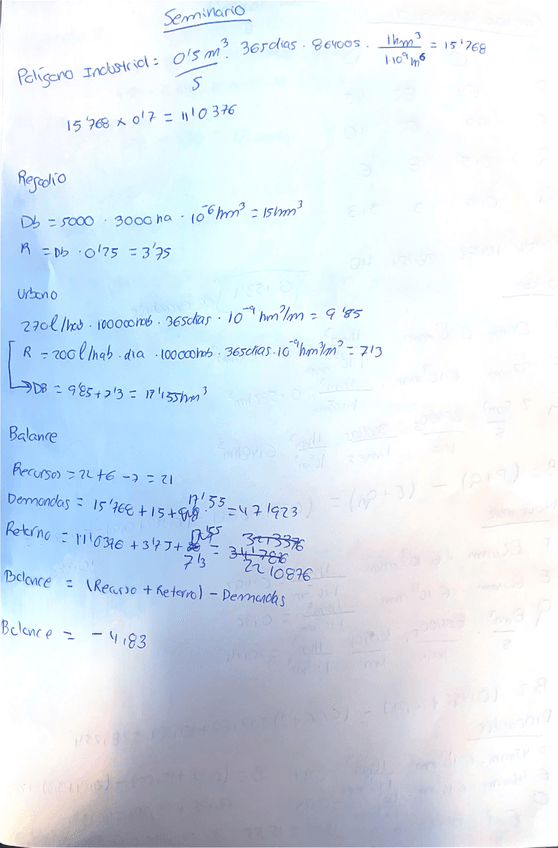 Seminario
Polígono Industrial = 0'5 m³/s · 365dias · 86400s · 1hm³/1·10⁶m⁶ = 15'768
15'768 x 0'7 = 11'0376
Regadío
Db = 5000 · 3000ha · 10⁻⁶ hm³ = 15hm³
R = Db · 0'25 = 3'75
Urbano
270l/hab · 100000hab · 365dias · 10⁻⁹ hm³/m = 9'85
R = 200l/hab · dia · 100000hab · 365dias · 10⁻⁹ hm³/m³ = 7'3
DB = 9'85 + 7'3 = 17'155hm³
Balance
Recursos = 22+6-7 = 21
Demandas = 15'768 + 15 + 17'55 = 47'923
Retorno = 11'0376 + 3'75 + 7'3 = 22'0876
Balance = (Recurso + Retorno) - Demandas
Balance = -4,83